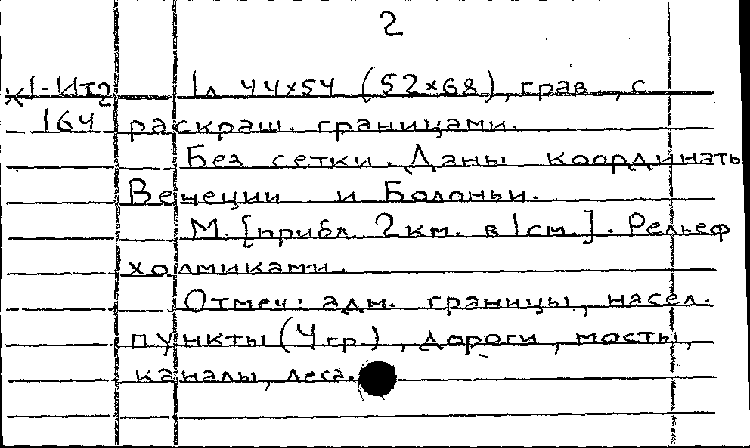 2
К1-Ит2 1л 44x54 (52x68), грав., с
164 раскраш. границами.
Без сетки. Даны координаты
Венеции и Болоньи.
М. [прибл. 2км. в 1см.]. Рельеф
холмиками.
Отмеч: адм. границы, насел.
пункты (4 гр.), дороги, мосты,
каналы, леса.